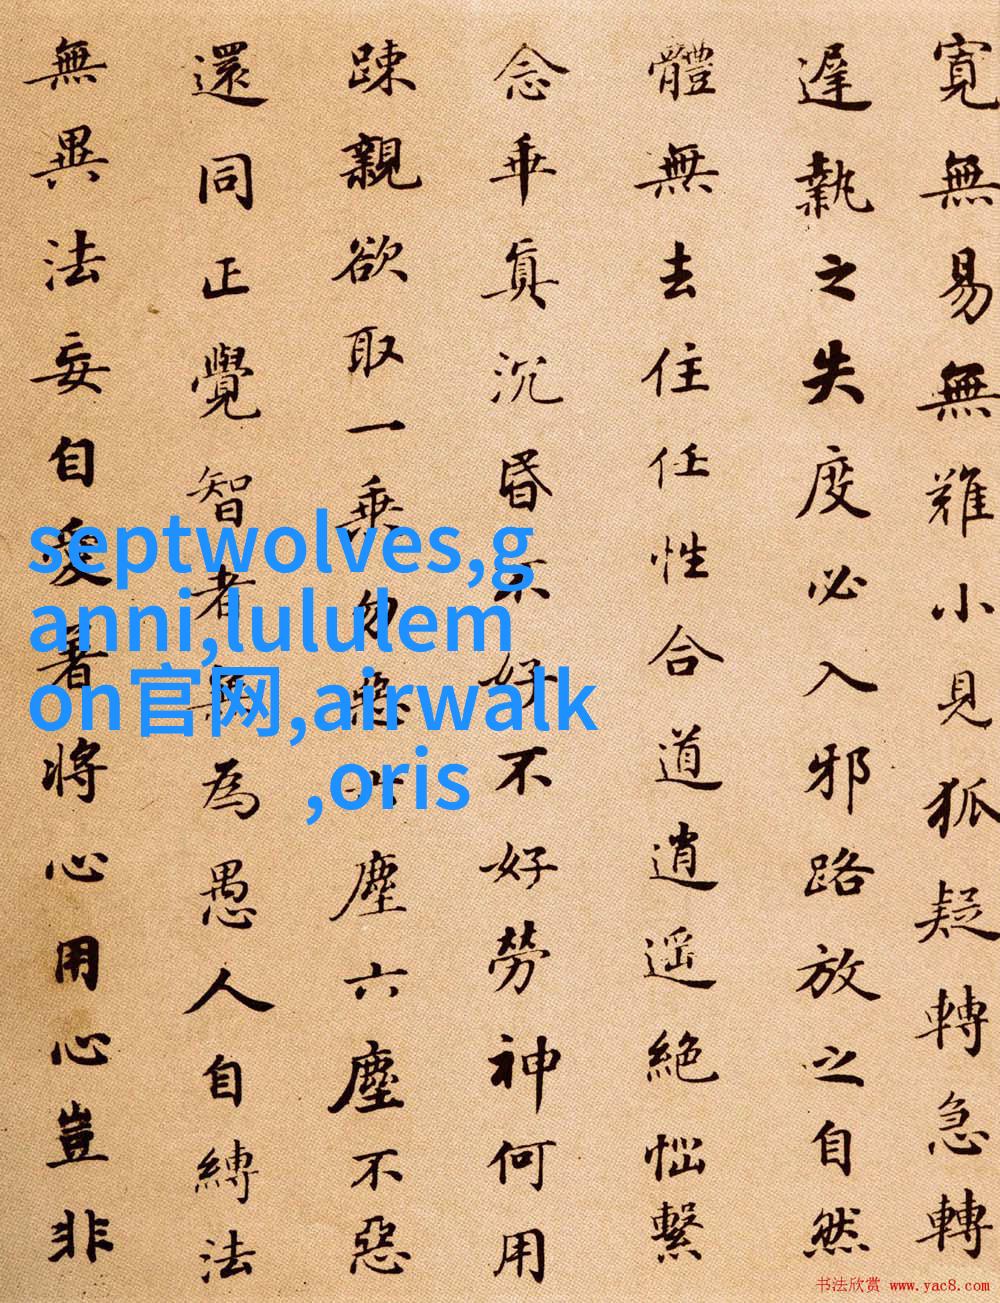 寬無易無難小見狐疑轉急轉
遲執之失度必入邪路放之自然
體無去住任性合道逍遥絶惱繫
念乖真沉昏不好不好勞神何用
踈親欲取一乘勿惡六塵六塵不惡
還同正覺智者無為愚人自縛法
無異法妄自愛著將心用心豈非
septwolves,g
anni,lululem
on官网,airwalk
,oris
书法欣赏 www.yac8.com